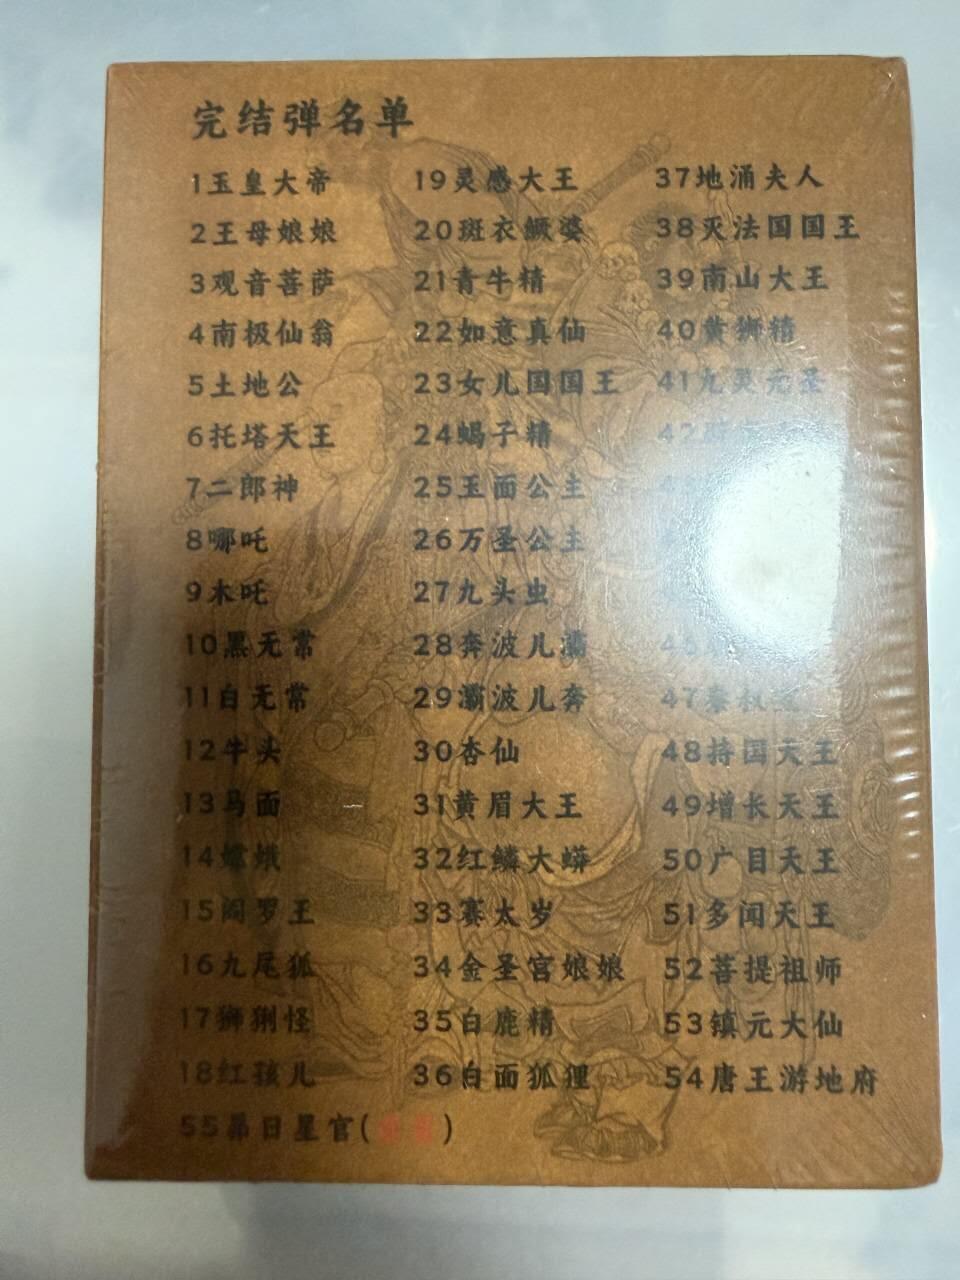 完结弹名单
1玉皇大帝
2王母娘娘
3观音菩萨
4南极仙翁
5土地公
6托塔天王
7二郎神
8哪吒
9木吒
10黑无常
11白无常
12牛头
13马面
14嫦娥
15阎罗王
16九尾狐
17狮猁怪
18红孩儿
19灵感大王
20斑衣鳜婆
21青牛精
22如意真仙
23女儿国国王
24蝎子精
25玉面公主
26万圣公主
27九头虫
28奔波儿灞
29灞波儿奔
30杏仙
31黄眉大王
32红鳞大蟒
33赛太岁
34金圣宫娘娘
35白鹿精
36白面狐狸
37地涌夫人
38灭法国国王
39南山大王
40黄狮精
41九灵元圣
42
46
47秦叔宝
48持国天王
49增长天王
50广目天王
51多闻天王
52菩提祖师
53镇元大仙
54唐王游地府
55昴日星官( )